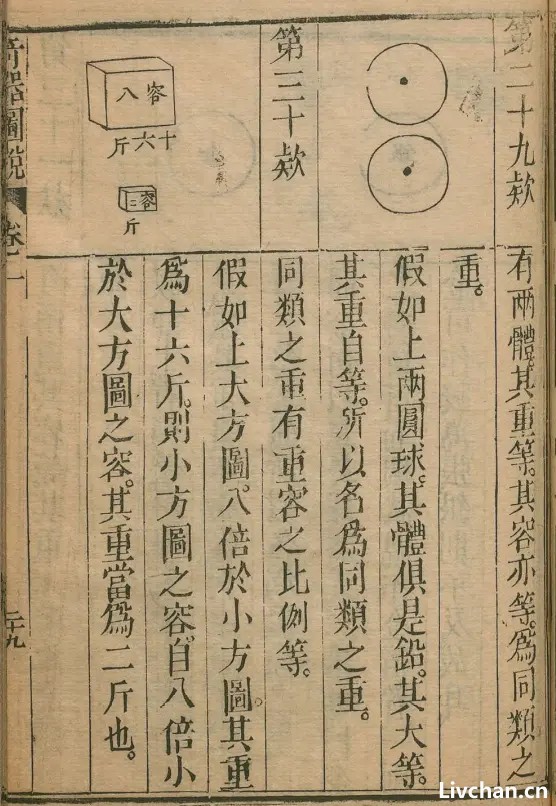 第二十九欵
有兩體。其重等。其容亦等。爲同類之
重。
假如上兩圓球。其體俱是鉛。其大等。
其重自等。所以名爲同類之重。
第三十欵
同類之重有重容之比例等。
容八
十六斤
容二
斤
假如上大方圖。八倍於小方圖。其重
爲十六斤。則小方圖之容。自八倍小
於大方圖之容。其重當爲二斤也。
奇器圖說
卷二
二十九
Livchan.cn